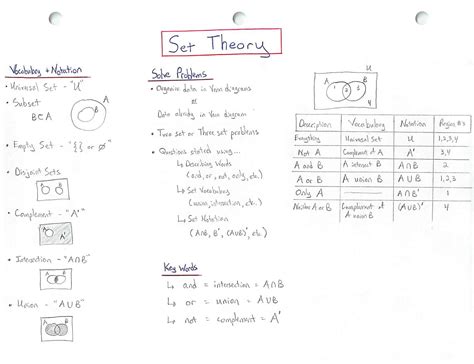 Set Theory
Vocabulary + Notation
• Universal Set - "U"
• Subset
B⊂A
A
B
• Empty Set - "{ } or ∅"
• Disjoint Sets
A
B
• Complement - "A'"
A
• Intersection - "A∩B"
A
B
• Union - "A∪B"
A
B
Solve Problems
• Organize data in Venn diagrams
or
Data already in Venn diagram
• Two set or Three set problems
• Questions stated using....
↳ Describing Words
(and, or, not, only, etc.)
↳ Set Vocabulary
(union, intersection, etc.)
↳ Set Notation
(A∩B, B', (A∪B)', etc.)
Key Words
↳ and = intersection = A∩B
↳ or = union = A∪B
↳ not = complement = A'
U
A
B
1
2
3
4
Description Vocabulary Notation Region #'s
Everything Universal Set U 1,2,3,4
Not A Complement of A A' 3,4
A and B A intersect B A∩B 2
A or B A union B A∪B 1,2,3
Only A A∩B' 1
Neither A or B Complement of A union B (A∪B)' 4